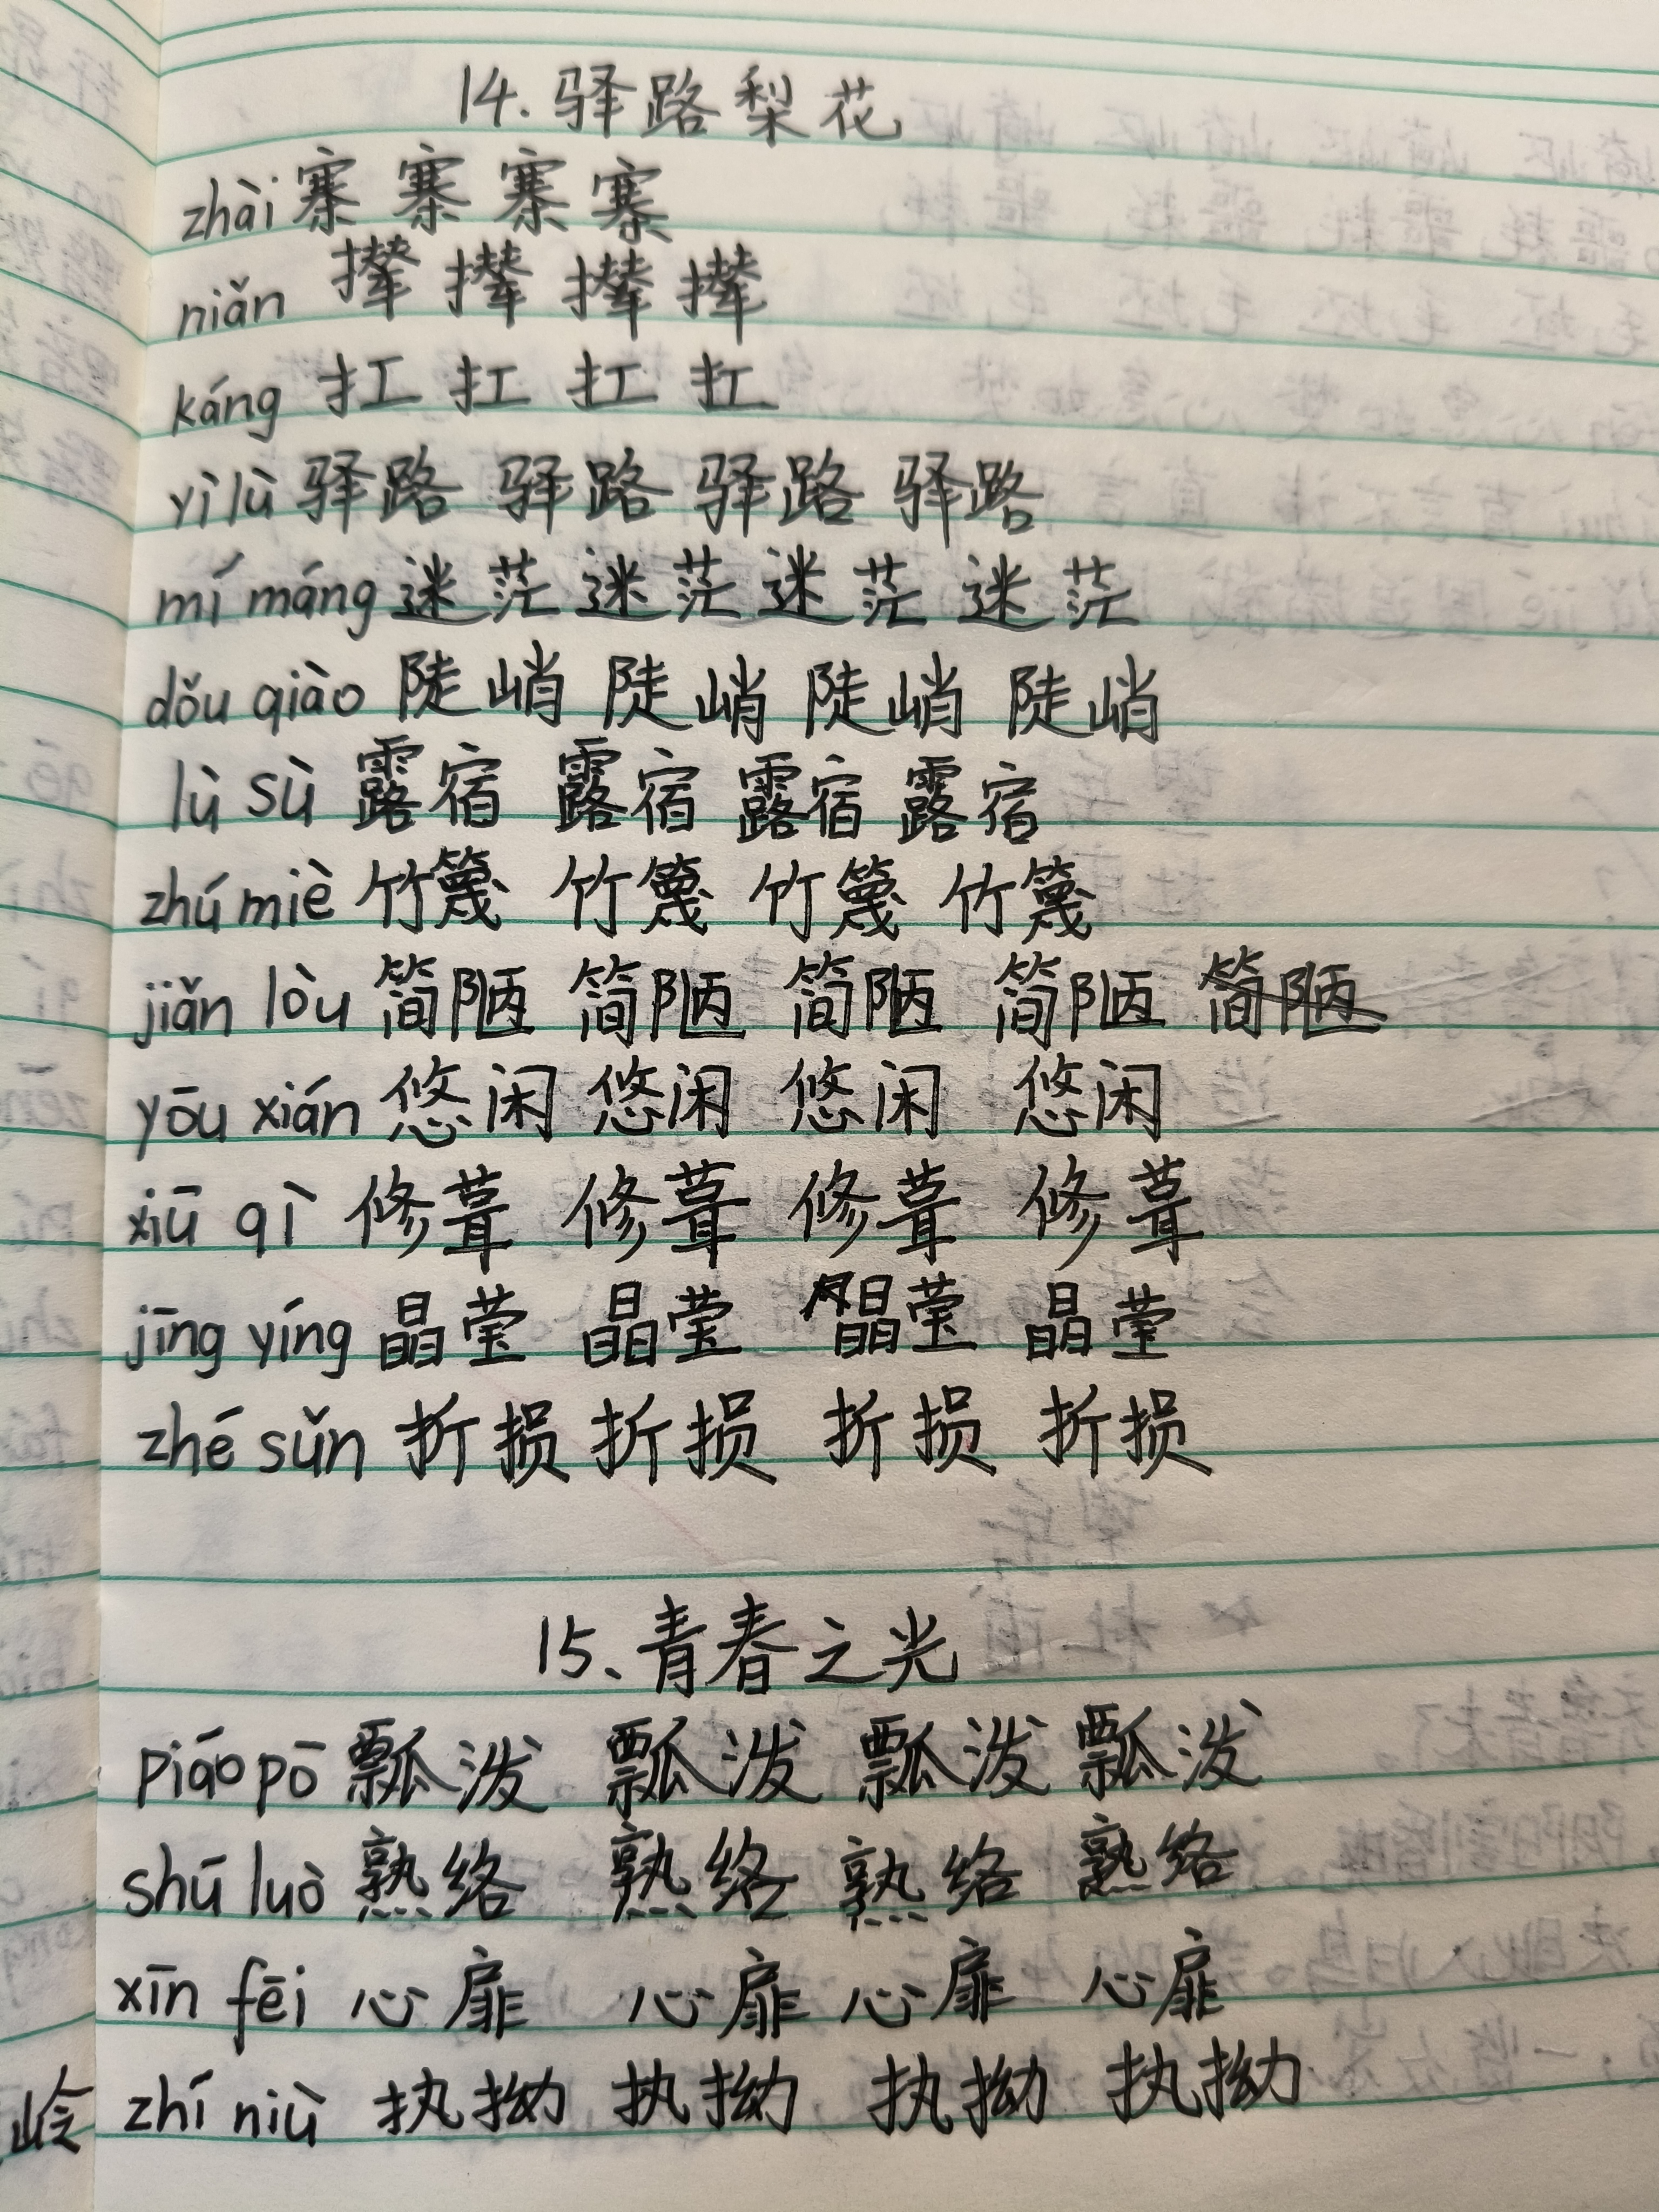 14. 驿路梨花
zhài 寨 寨 寨 寨
niǎn 撵 撵 撵 撵
káng 扛 扛 扛 扛
yì lù 驿路 驿路 驿路 驿路
mí máng 迷茫 迷茫 迷茫 迷茫
dǒu qiào 陡峭 陡峭 陡峭 陡峭
lù sù 露宿 露宿 露宿 露宿
zhú miè 竹篾 竹篾 竹篾 竹篾
jiǎn lòu 简陋 简陋 简陋 简陋 简陋
yōu xián 悠闲 悠闲 悠闲 悠闲
xiū qì 修葺 修葺 修葺 修葺
jīng yíng 晶莹 晶莹 晶莹 晶莹
zhé sǔn 折损 折损 折损 折损
15、青春之光
piáo pō 瓢泼 瓢泼 瓢泼 瓢泼
shú luò 熟络 熟络 熟络 熟络
xīn fēi 心扉 心扉 心扉 心扉
zhí niù 执拗 执拗 执拗 执拗